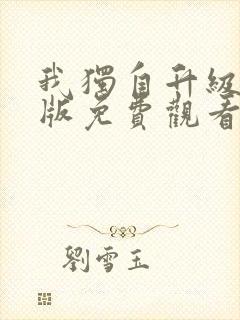 我獨自升級
版免費觀看
劉雪玉